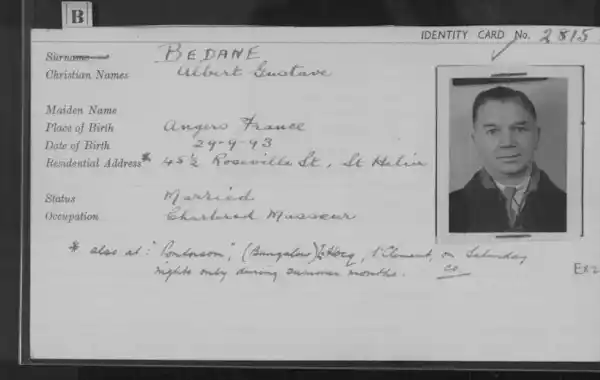 B
IDENTITY CARD No. 2815
Surname BEDANE
Christian Names Albert Gustave
Maiden Name
Place of Birth Angers France
Date of Birth 29-9-93
Residential Address* 45½ Roseville St, St Helier
Status Married
Occupation Chartered Masseur
* also at: "Pontorson", (Bungalow) St Clement, on Saturday
nights only during summer months.